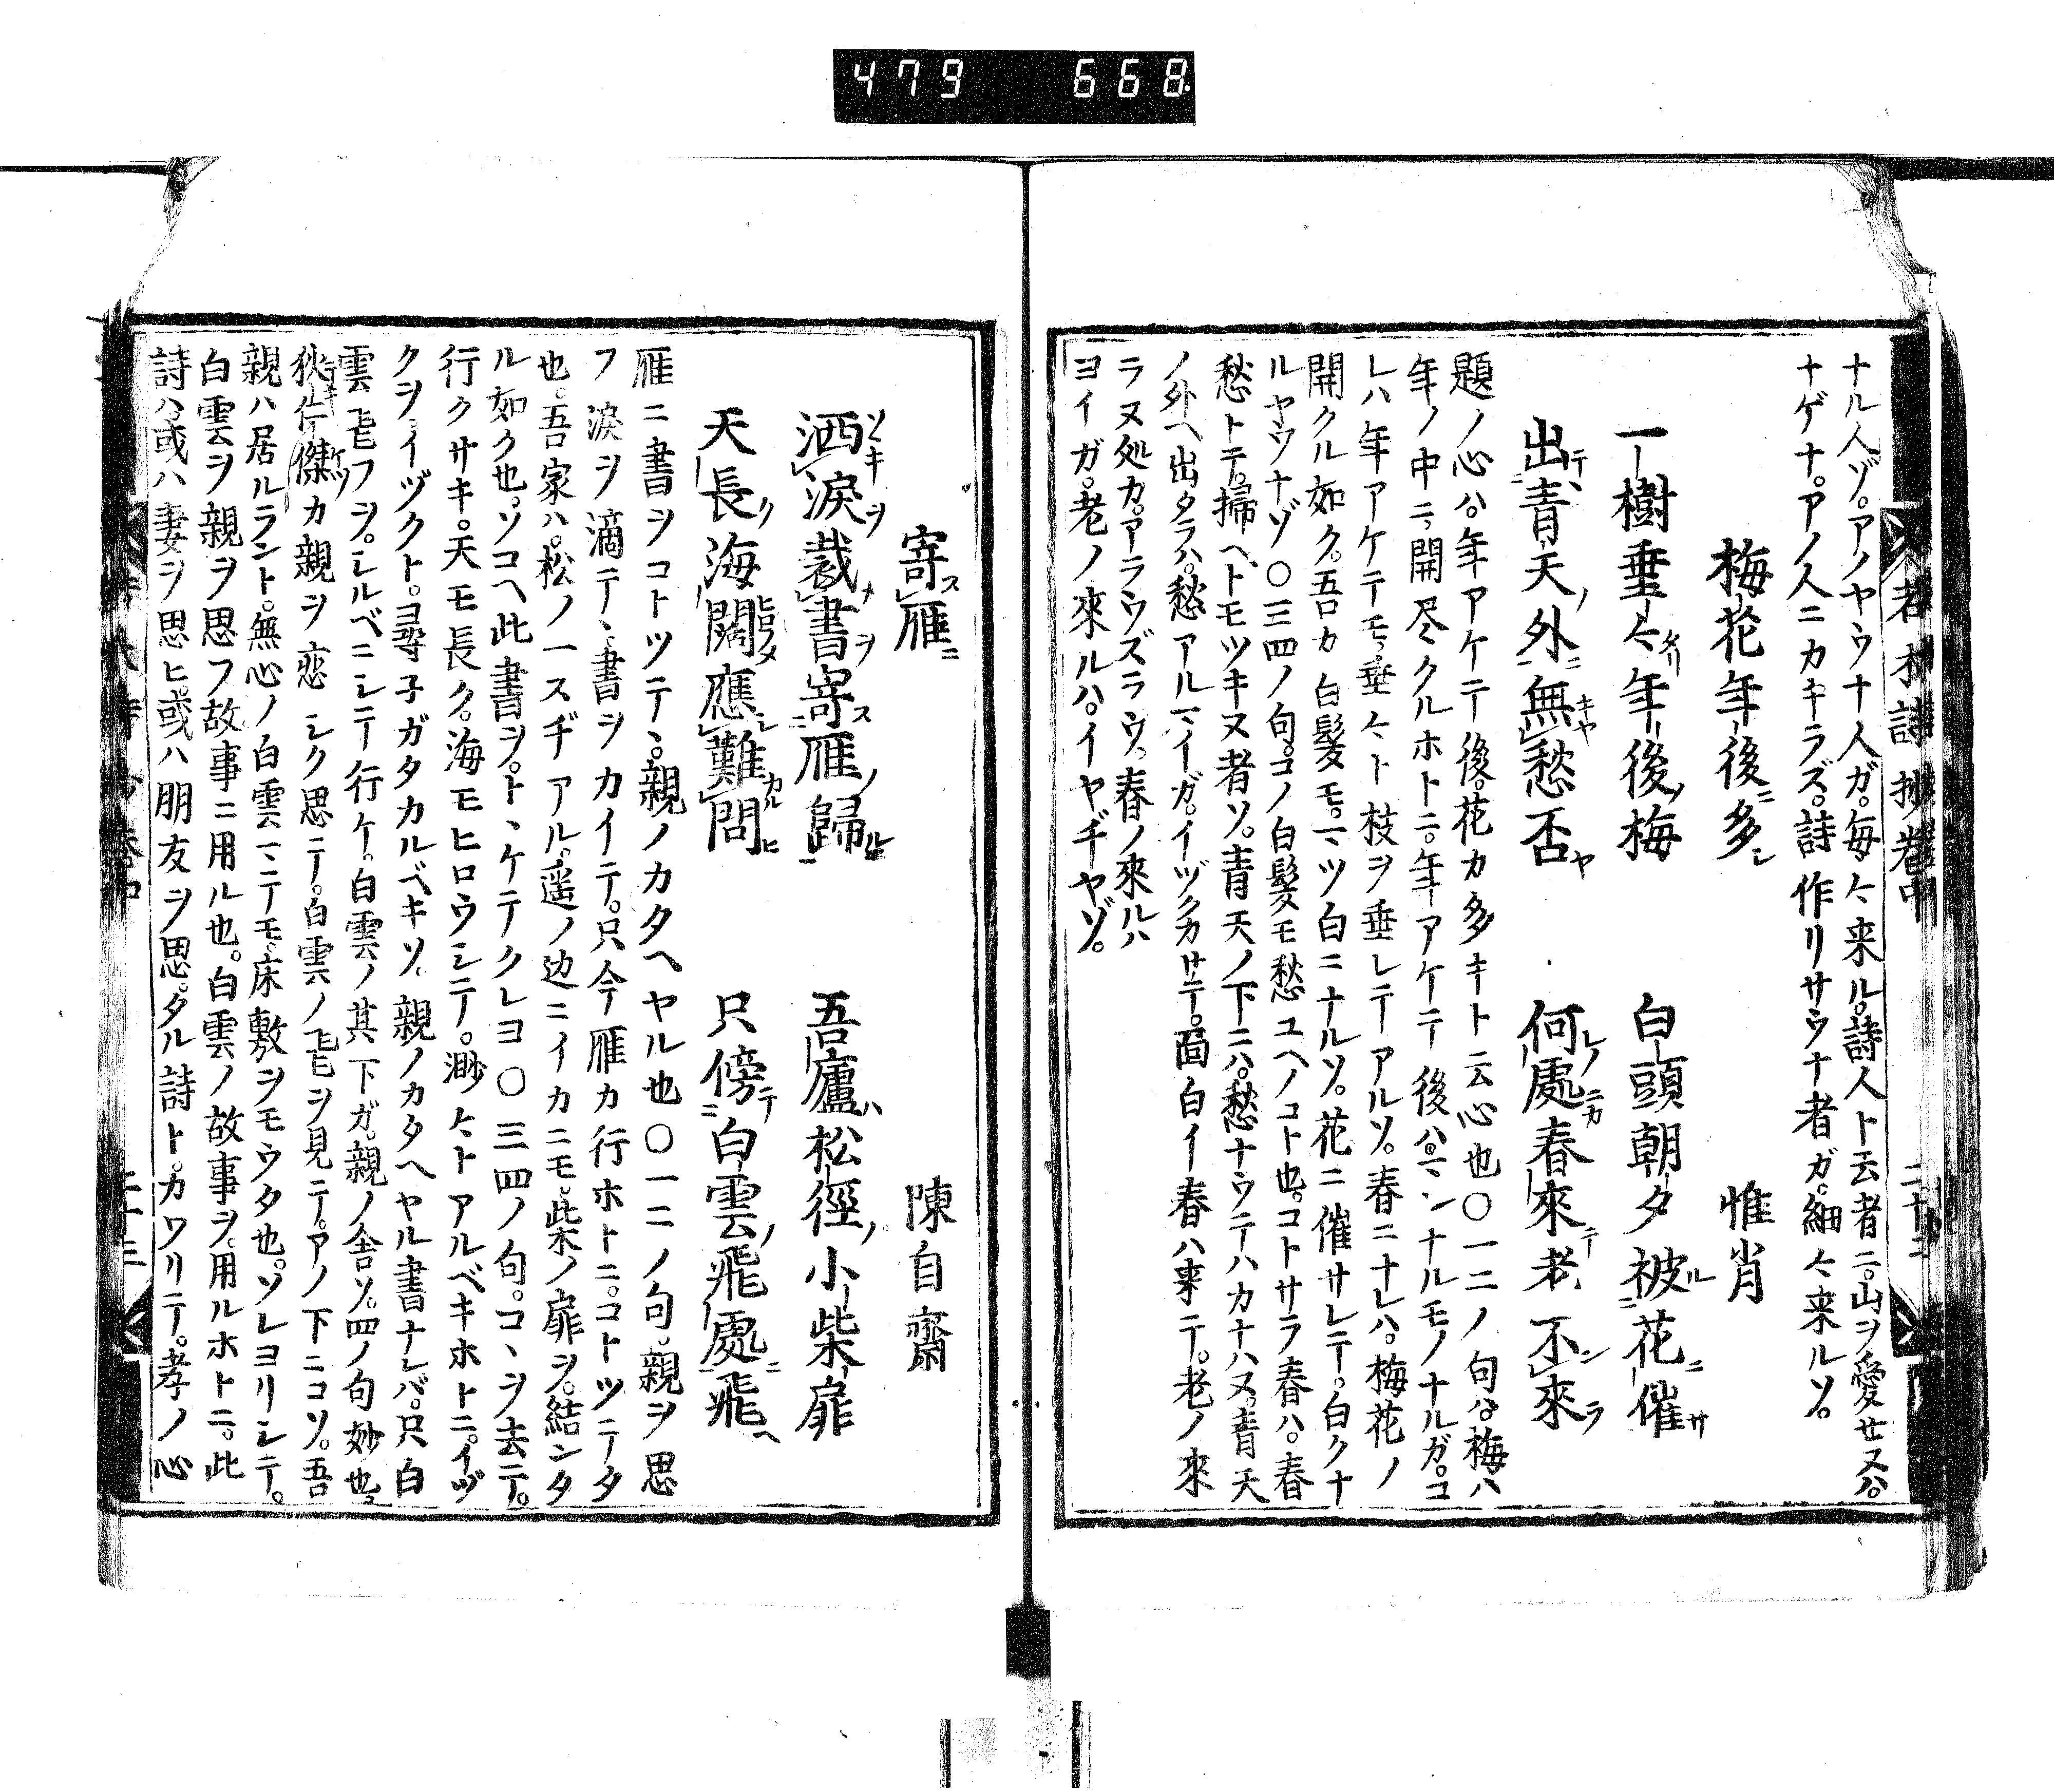 479 668
ナル人ゾ。アノヤウナ人ガ。毎々来ル。詩人ト云者ニ。山ヲ愛せヌハ。
ナゲナ。アノ人ニカキラズ。詩作リサウナ者ガ。細々来ルソ。
梅花年後多シ 惟肖
一樹垂々タリ年後ノ梅 白頭朝夕被ル花ニ催サ
出テ青天ノ外ニ無キヤ愁否ヤ 何レノ處ニカ春來テ老不ンラ來
題ノ心ハ。年アケテ後。花カ多キト云心也〇一二ノ句ハ。梅ハ
年ノ中ニ。開尽クルホトニ。年アケテ後ハ。ナンナルモノナルガ。コ
レハ年アケテモ。垂々ト枝ヲ垂レテアルソ。春ニナレハ。梅花ノ
開クル如ク。吾カ白髪モ。一ツ白ニナルソ。花ニ催サレテ。白クナ
ルヤウナゾ〇三四ノ句。コノ白髪モ愁ユヘノコト也。コトサラ春ハ。春
愁トテ。掃ヘトモツキヌ者ソ。青天ノ下ニハ。愁ナウテハカナハヌ。青天
ノ外ヘ出タラハ。愁アルマイガ。イヅクカサテ。面白イ春ハ来テ。老ノ來
ラヌ処カ。アラウズラウ。春ノ來ルハ
ヨイガ。老ノ來ルハ。イヤヂヤゾ。
寄ス雁ニ 陳自齋
洒ソキ淚ヲ裁メ書ヲ寄ス雁ノ歸ルニ 吾廬ハ松徑ノ小柴扉
天長ク海闊ヒロメ應シ難カル問ヒ 只傍テ白雲ノ飛處ニ飛ヘ
雁ニ書ヲコトツテヽ。親ノカタヘヤル也〇一二ノ句。親ヲ思
フ淚ヲ滴テヽ書ヲカイテ。只今雁カ行ホトニ。コトツニテタ
也。吾家ハ。松ノ一スヂアル。遥ノ辺ニイカニモ。柴ノ扉ヲ。結ンタ
ル如ク也。ソコヘ此書ヲ。トヽケテクレヨ〇三四ノ句。コヽヲ去テ。
行クサキ。天モ長ク。海モヒロウシテ。渺々トアルベキホトニ。イヅ
クヲ。イヅクト。尋子ガタカルベキソ。親ノカタヘヤル書ナレバ。只白
雲飛フヲ。シルベニシテ行ケ。白雲ノ其下ガ。親ノ舎ソ。四ノ句妙也。
狄仁傑カ親ヲ恋シク思テ。白雲ノ飛ヲ見テ。アノ下ニコソ。吾
親ハ居ルラント。無心ノ白雲マテモ。床敷ヲモウタ也。ソレヨリシテ。
白雲ヲ親ヲ思フ故事ニ用ル也。白雲ノ故事ヲ。用ルホトニ。此
詩ハ。或ハ妻ヲ思ヒ。或ハ朋友ヲ思。タル詩ト。カワリテ。孝ノ心